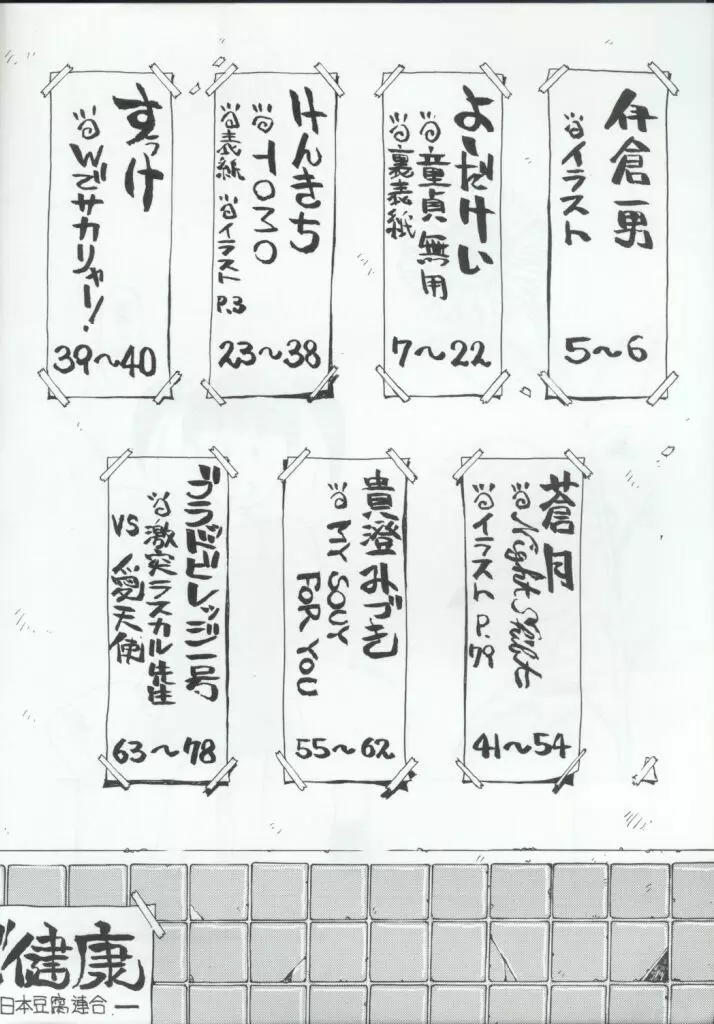 伊倉一男
イラスト
5～6
よーだけい
童貞無用
裏表紙
7～22
けんきち
TOMO
表紙 イラスト P.3
23～38
すっけ
Wでサカリャー!
39～40
蒼月
Night Shift
イラスト P.79
41～54
貴澄みづき
MY SOUY
FOR YOU
55～62
ブラドビレッジ一号
激突ラスカル先生
VS 愛天使
63～78
健康
日本豆腐連合